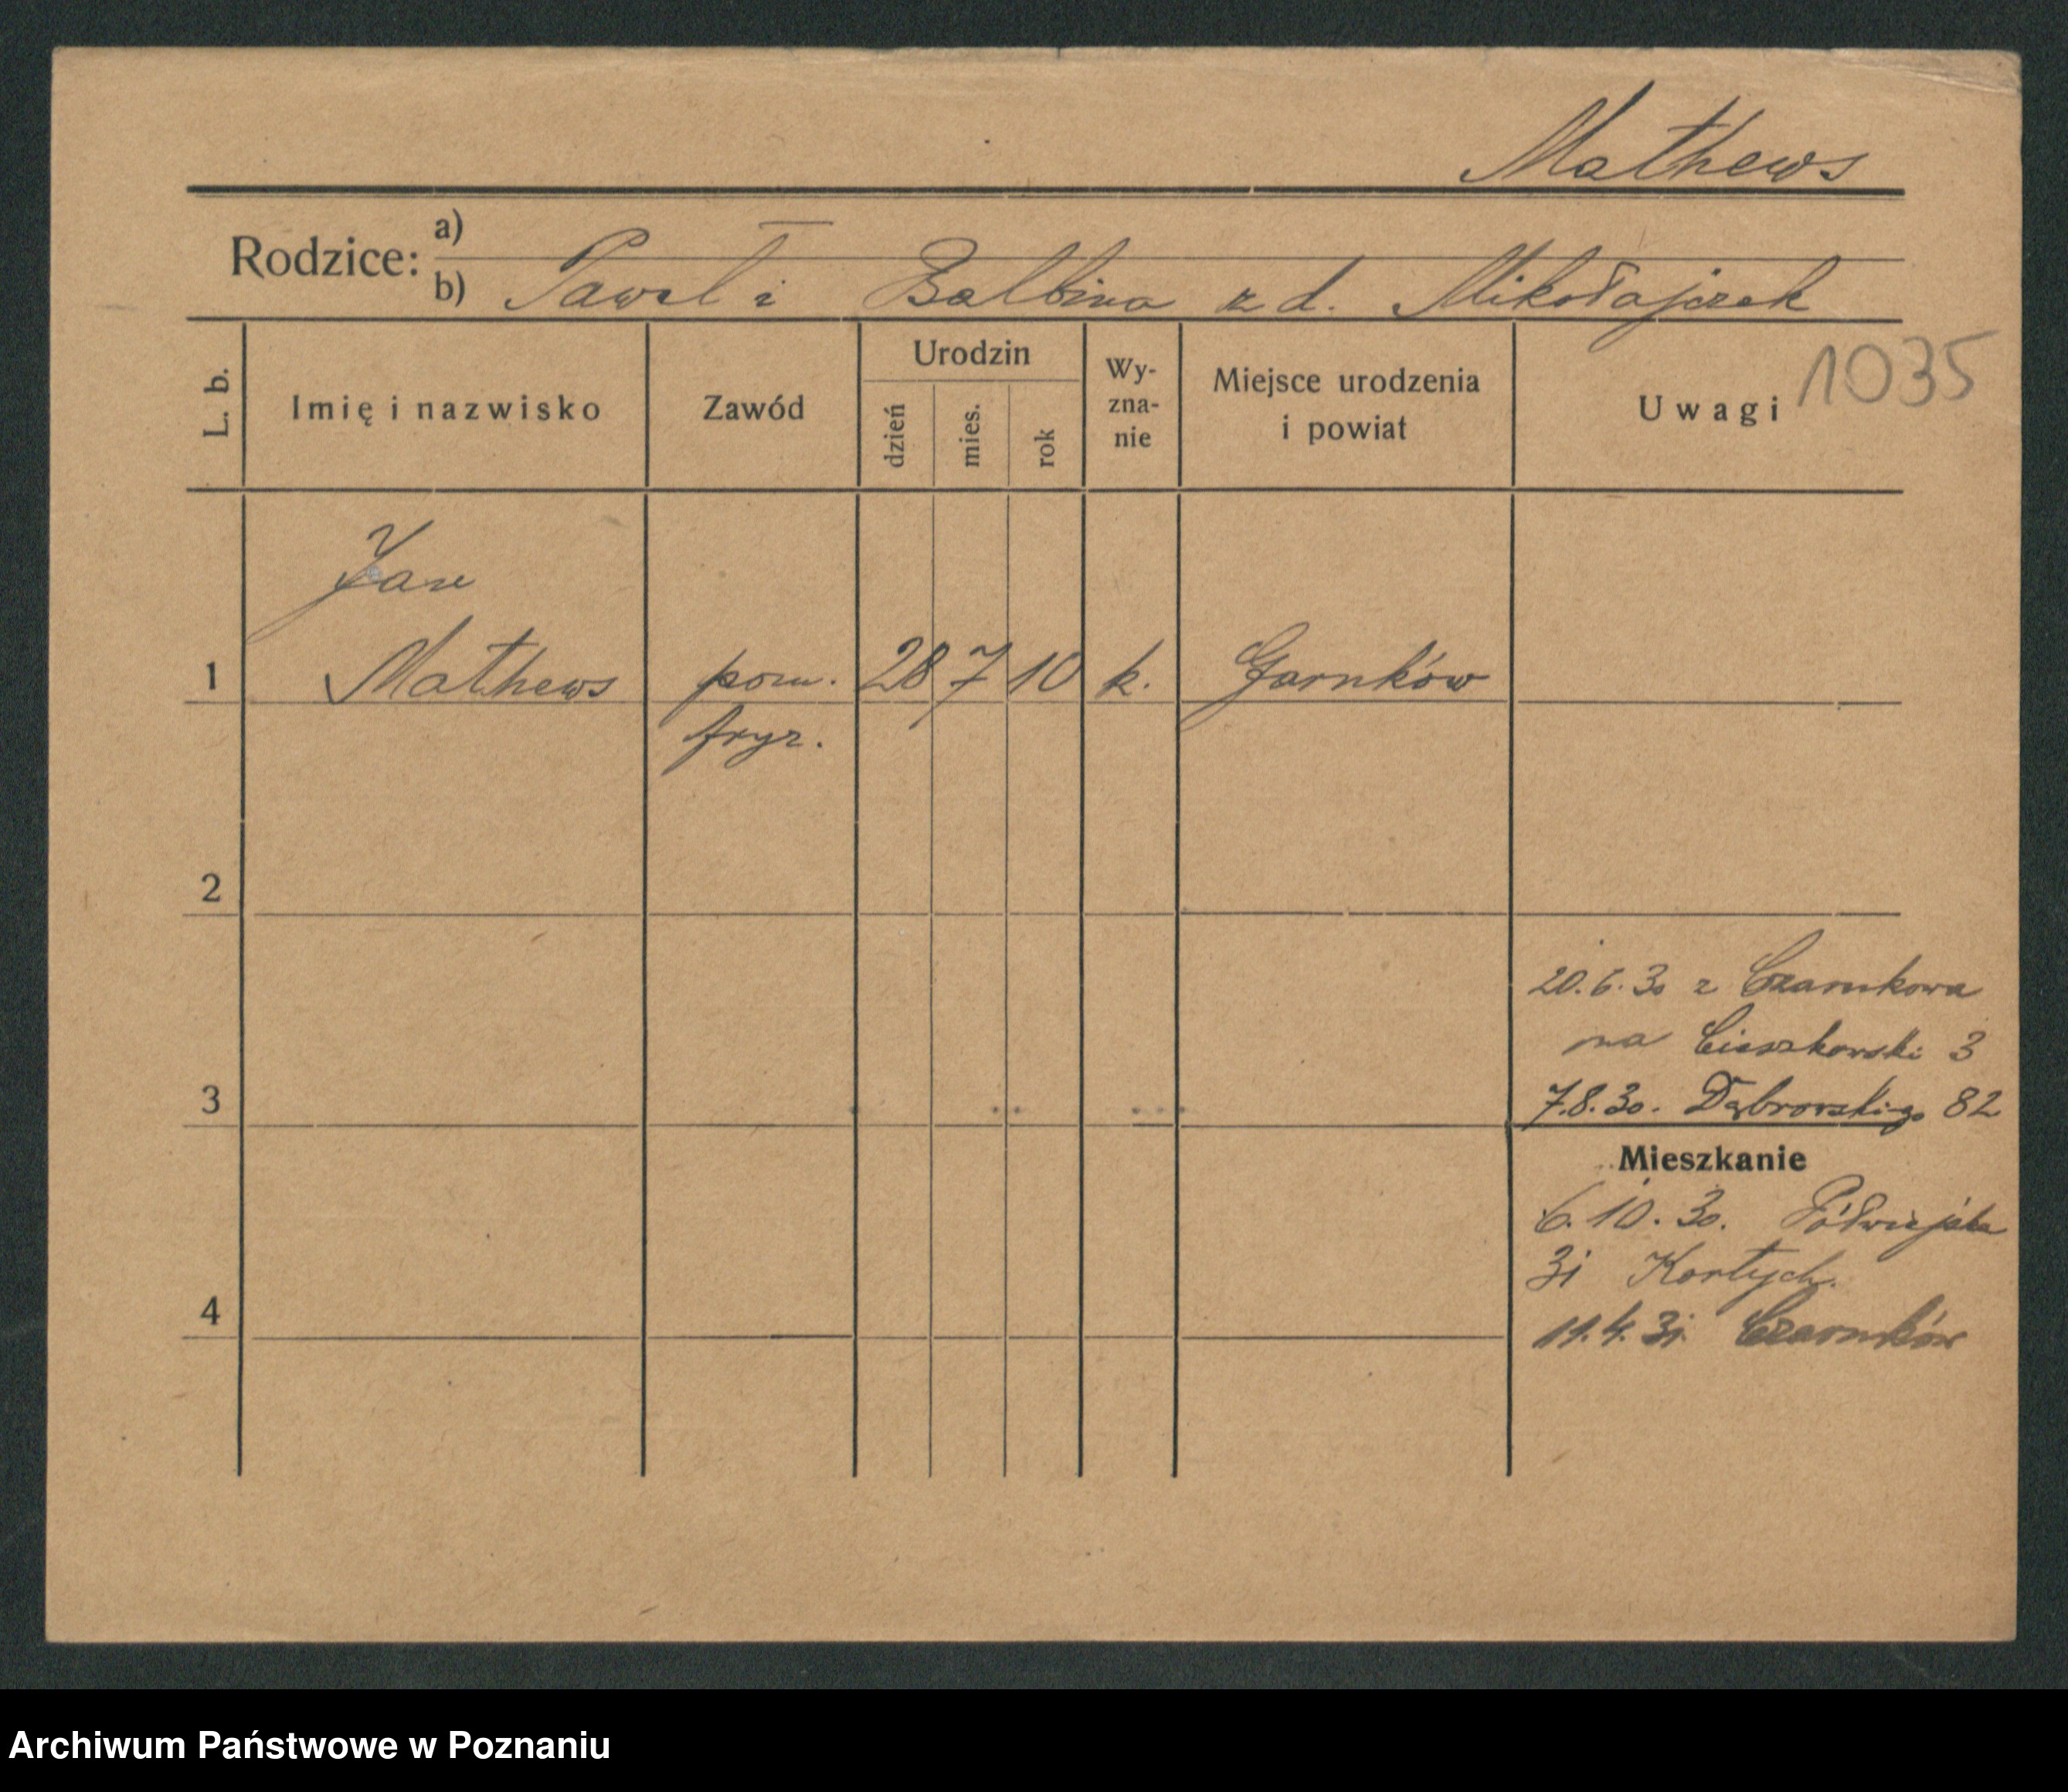 Mathews
Rodzice: a)
b) Paweł i Balbina z d. Mikołajczak
1035
L. b.
Imię i nazwisko
Zawód
Urodzin
dzień
mies.
rok
Wy-
zna-
nie
Miejsce urodzenia
i powiat
Uwagi
Jan
1 Mathews pom. 28 7 10 k. Garnków
fryz.
2
20.6.30 z Czarnkowa
na Cieszkowski 3
3
7.8.30. Dąbrowskiego 82
Mieszkanie
6.10.30. Półwiejska
31 Kortych.
4
11.4.31 Czarnków
Archiwum Państwowe w Poznaniu